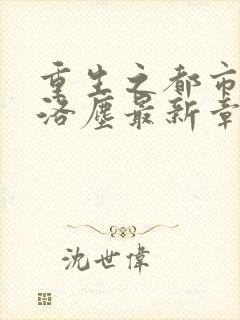 重生之都市
洛塵最新章
沈世偉